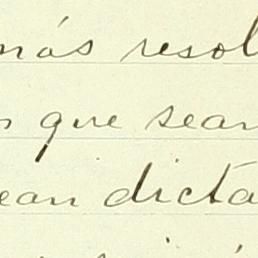 más resol
que sean
ean dicta